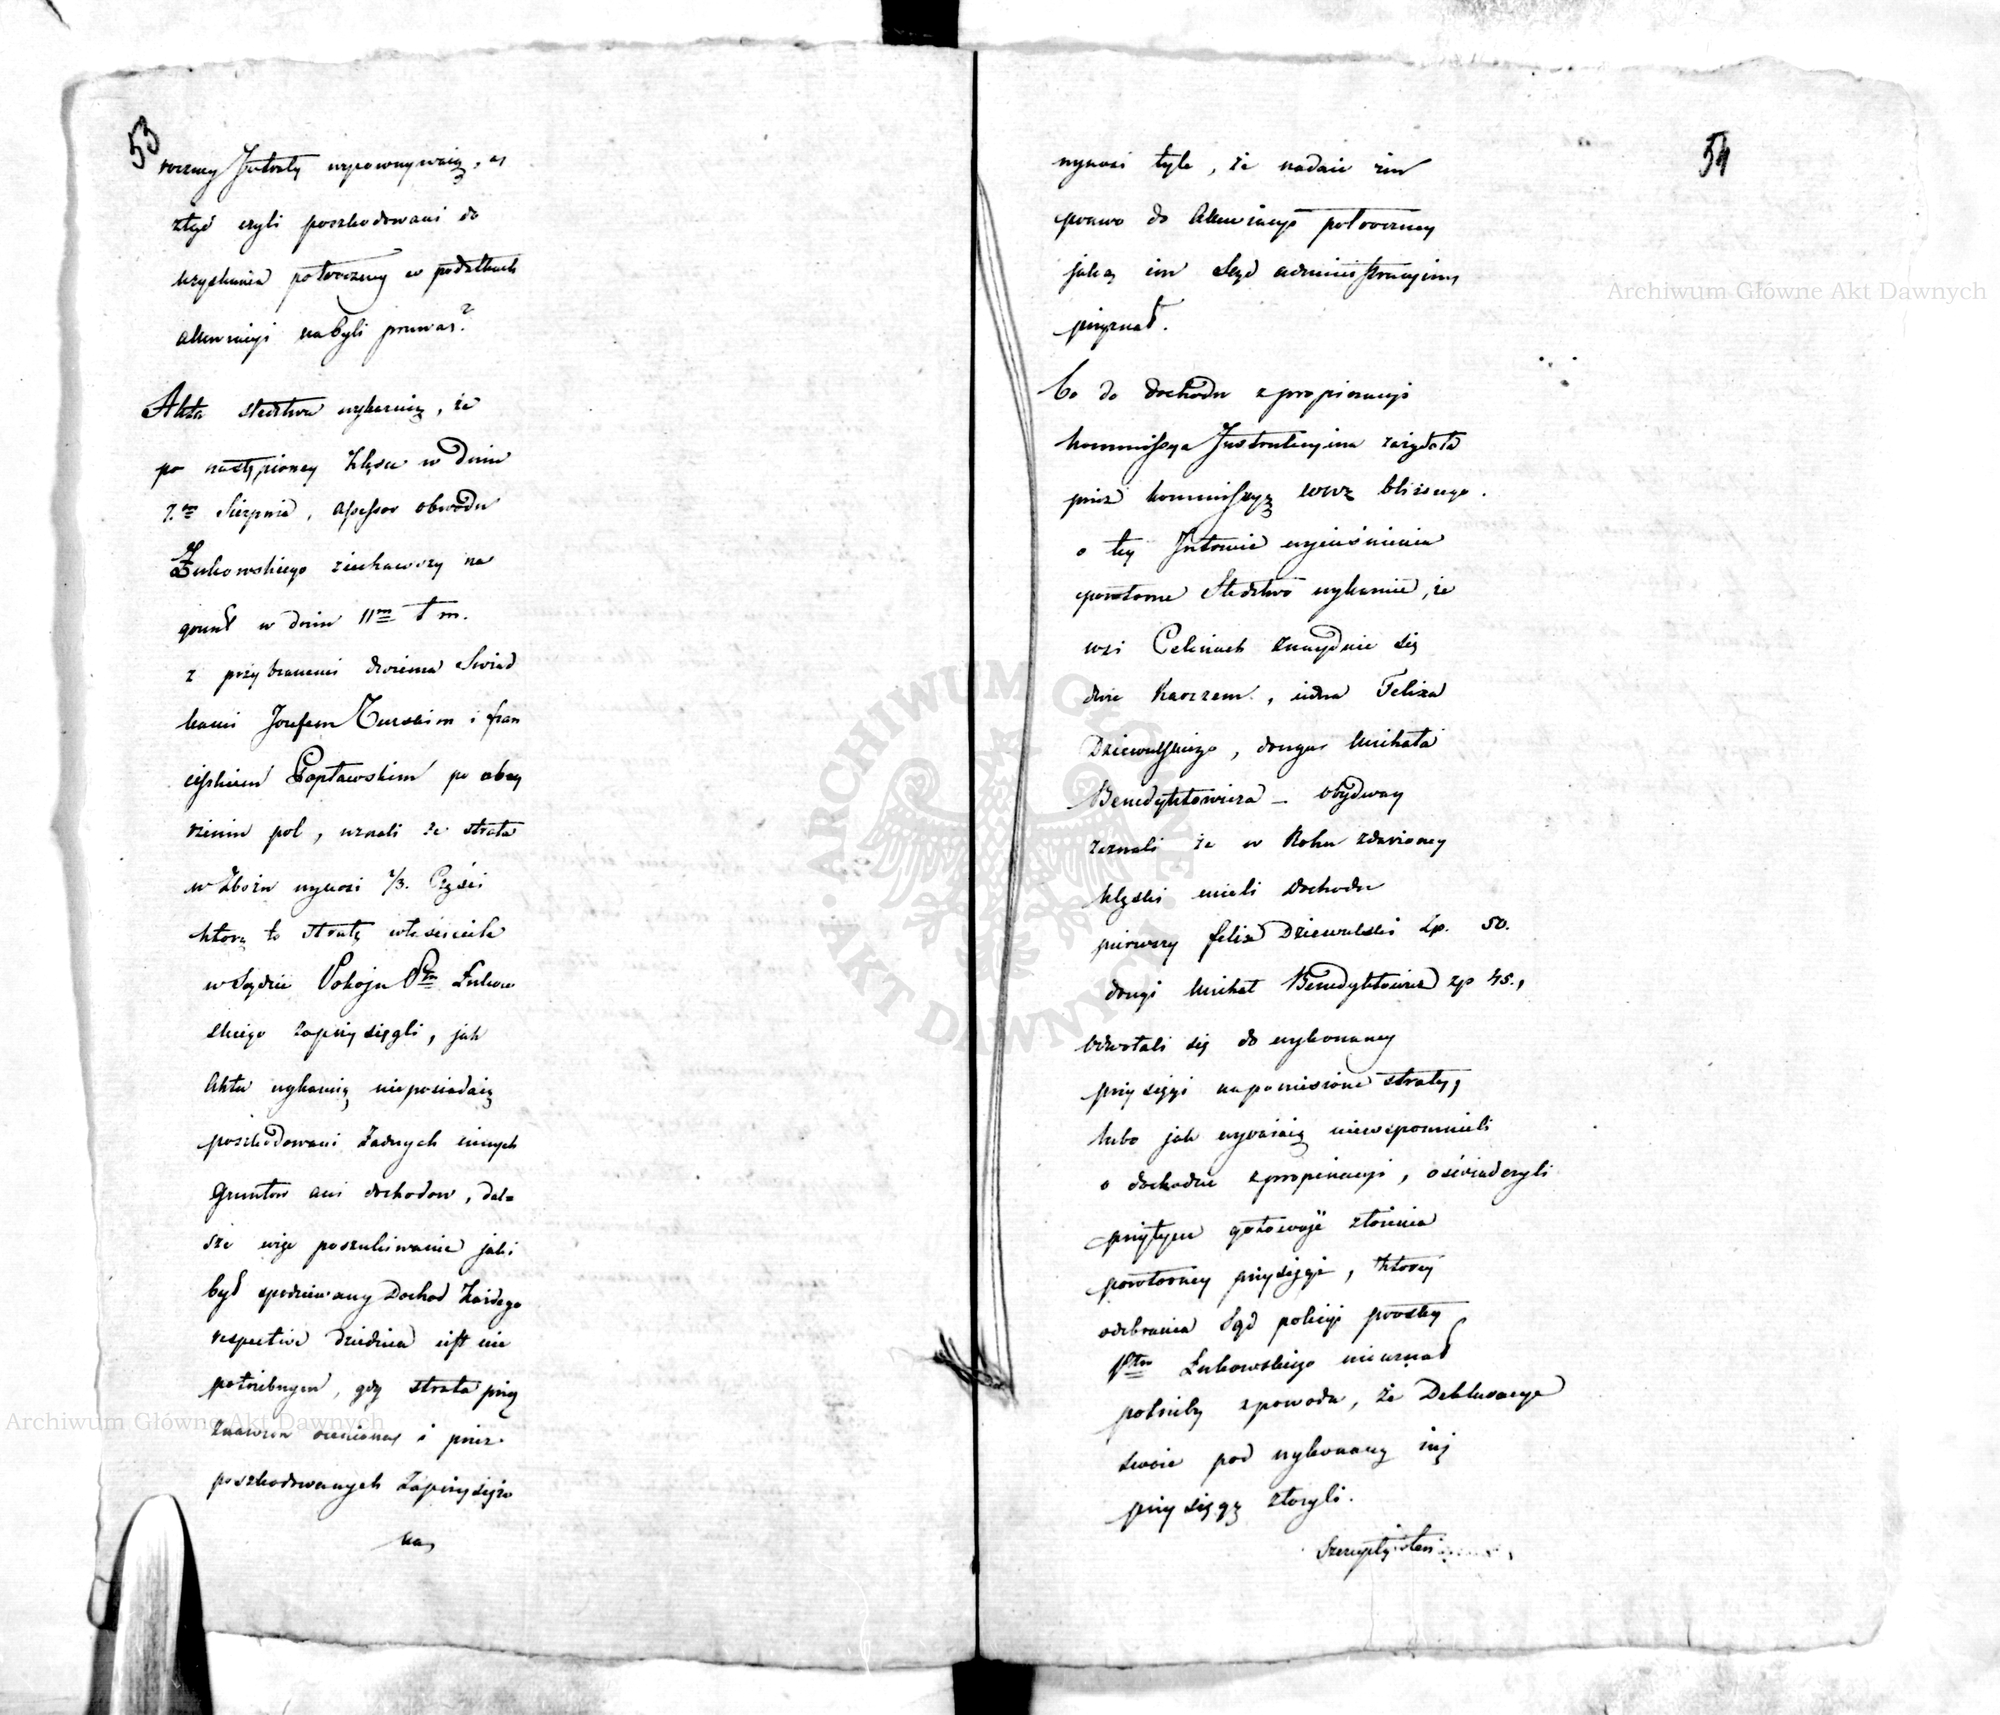 53
roczney Intraty wyrownywaią, a
ztąd czyli poszkodowani do
uzyskania półroczney w podatkach
allewiacyi nabyli prawa?
Akta śledztwa wykazuią, że
po nastąpioney klęsce w dniu
7.m Sierpnia, Assessor obwodu
Łukowskiego ziechawszy na
grunt w dniu 11m t m.
z przybranemi dwiema Swiad
kami Jozefem Turskim i Fran
ciszkiem Popławskim po obey
rzeniu pol, uznali że strata
w Zbożu wynosi 2/3. Części
którą to stratę właściciele
w Sądzie Pokoju Ptu Łukow
skiego zaprzysięgli, jak
Akta wykazuią nieposiadaią
poszkodowani żadnych innych
Gruntow ani dochodow, dal-
sze więc poszukiwanie jaki
był spodziewany Dochod każdego
respective dziedzica iest nie
potrzebnym, gdy strata przez
znawcow oceniona i przez
poszkodowanych zaprzysiężo
na,
54
wynosi tyle, że nadaie im
prawo do Allewiacyi połroczney
jaką im Sąd administracyiny
przyznał.
Co do dochodu z propinacyi
Kommissya Instrukcyina zażądała
przez kommissyą woiew bliższego
o tey Intracie wyiaśnienia
powtorne Sledztwo wykazuie, że
wsi Celinach znayduie się
dwie Karczem, iedna Felixa
Dziewulskiego, druga Michała
Benedyktowicza – obydway
zeznali że w Roku zdarzoney
klęski mieli dochodu
pierwszy Felix Dziewulski Zp. 50.
drugi Michał Benedyktowicz zp 45.,
odwołali się do wykonaney
przysięgi na poniesione straty,
lubo jak wyrażaią niewspomnieli
o dochodzie z propinacyi, oświadczyli
przytym gotowość złożenia
powtorney przysięgi, ktorey
odebrania Sąd policyi prostey
Ptu Łukowskiego nieuznał
potrzeby z powodu, że Deklaracye
swoie pod wykonaną iuż
przysięgą złożyli.
Archiwum Główne Akt Dawnych
Archiwum Główne Akt Dawnych
ARCHIWUM GŁÓWNE · AKT DAWNYCH ·